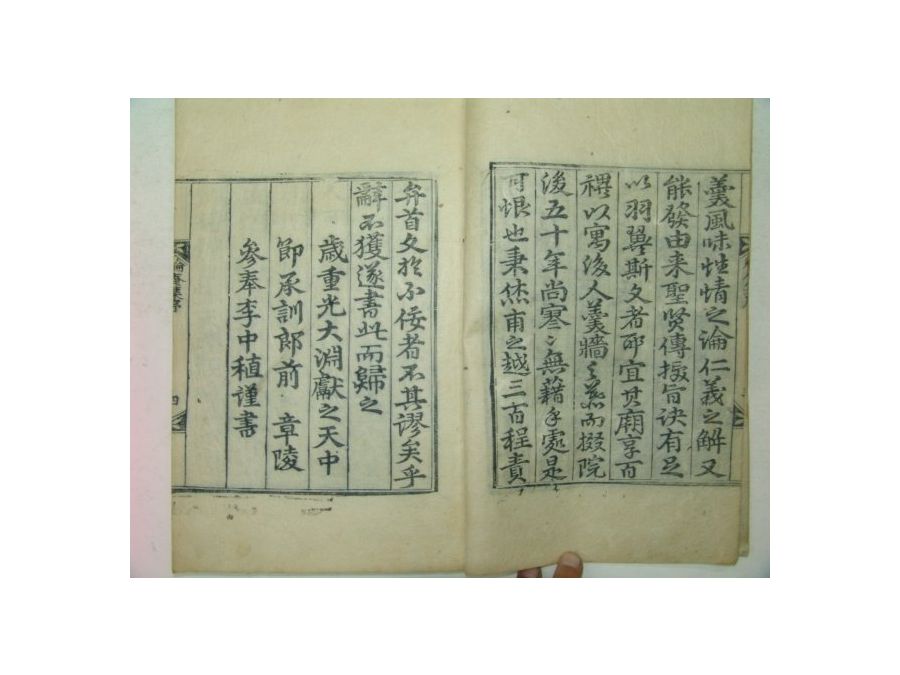 羹風味性情之論仁義之解又
能發由来聖賢傳授旨诀有足
以羽翼斯文者耶宜其廟享百
禩以寓後人羹牆之慕而掇院
後五十年尚寒〻無藉手處是
可恨也秉烋甫之越三百程責
弁首文於不佞者不其謬矣乎
辭不獲遂書此而歸之
歳重光大淵獻之天中
節承訓郎前 章陵
參奉李中稙謹書
四